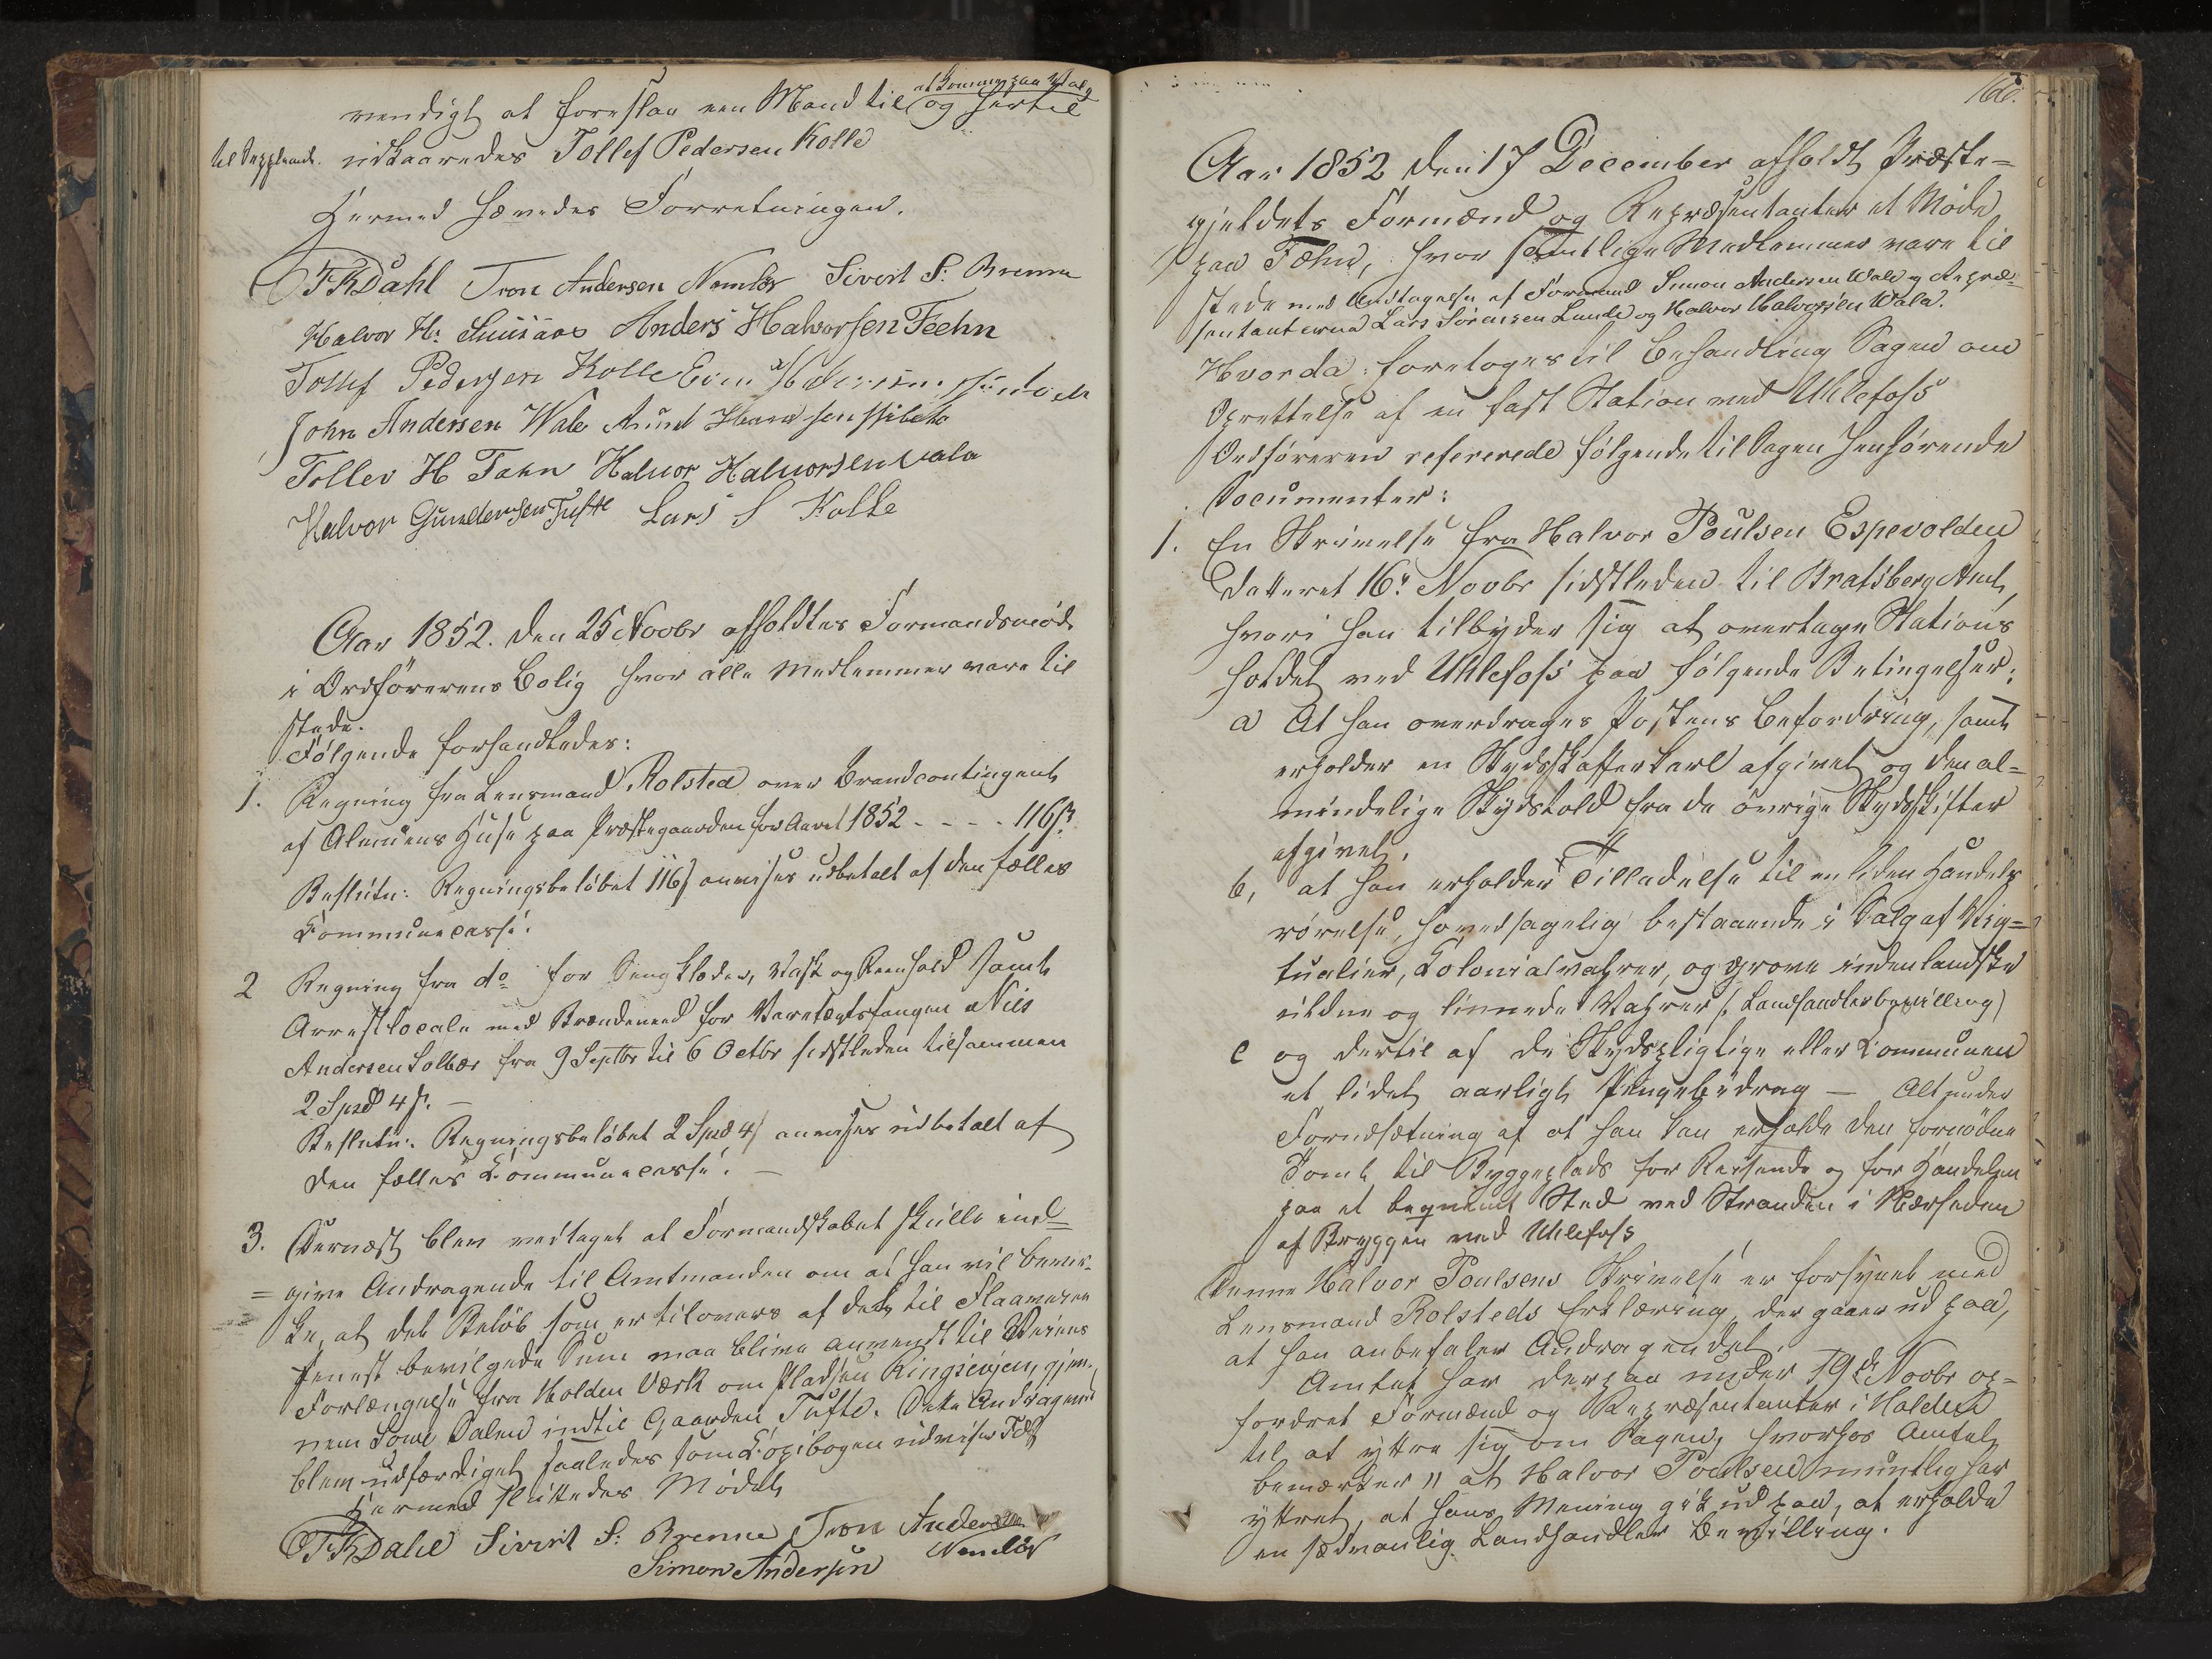 vendigt at foreslaa een Mand til og hertil
til Suppleant. udkaaredes Tollef Pedersen Kolle
Hermed hævedes Forretningen.
TRDahl Tron Andersen Nomelør Sivert S. Brenne
Halvor H: Anders Halvorsen Feehn
Tollef Pedersen Kolle
John Andersen Wale Amund
Tollev H Tæhn Halvor Halvorsen vala
Halvor Gundersen Tufte Lars S Kolle
Aar 1852. den 25 Novbr afholdtes Formandsmøde
i Ordförerens Bolig hvor alle Medlemmer vare til
stede.
Følgende forhandledes:
1. Regning fra Lensmand Rolsted over Brandcontingent
af Almuens Huse paa Præstegaarden for Aaret 1852 - - - - 116 ß
Beslutn: Regningsbeløbet 116 ß anvises udbetalt af den fælles
Kommunecasse.
2 Regning fra do for Sengklæder, Vask og Reenhold samt
Arrestlocale med Brændeved for Varetægtsfangen Niels
Andersen Solbær fra 9 Septbr til 6 Octbr sidstleden tilsammen
2 Spd 4 ß. —
Beslutn: Regningsbeløbet 2 Spd 4 ß anvises udbetalt af
den fælles Kommunecasse. —
3. Dernæst blev vedtaget at Formandskabet skulle ind=
= give Andragende til Amtmanden om at han vil bevir-
ke, at det Beløb som er tilovers af det til Flaavejen
forlængst bevilgede Sum maa blive anvendt til Veiens
Forlængelse fra Holden Værk om Pladsen Ringsevjen gjen-
nem Lowe Dalen indtil Gaarden Tufte. Dette Andragende
blev udfærdiget saaledes som Kopibogen udviser
Hermed sluttedes Mödet
TRDahl Sivert S: Brenne Tron Andersen
Simon Andersen Nomelør
Aar 1852 den 17 December afholdt Præste=
gjeldets Formænd og Repræsentanter et Møde
paa Fæhn, hvor samtlige Medlemmer vare til
stede med Undtagelse af Formand Simon Andersen Wala og Repræ-
sentanterne Lars Sørensen Lunde og Halvor Halvorsen Wala.
Hvorda: foretoges til Behandling Sagen om
Oprettelse af en fast Station ved Uhlefoss
Ordføreren refererede følgende til Sagen henhørende
Documenter:
1. En Skrivelse fra Halvor Poulsen Espevolden
dateret 16. Novbr sidstleden til Bratsberg Amt,
hvori han tilbyder sig at overtage Stations
holdet ved Uhlefoss paa følgende Betingelser:
a At han overdrages Postens Befordring, samt
erholder en Skydsskafferkarl afgivet og den al=
mindelige Skydstold fra de övrige Skydsskifter
afgivet.
b, at han erholder Tilladelse til en liden Handels
rörelse, hovedsagelig bestaaende i Salg af Vic=
tualier, Kolonialvahrer, og grove indenlandske
uldne og linnede Vahrer (: Landhandlerbevilling)
c og dertil af de Skydspligtige eller Kommunen
et lidet aarligt Pengebidrag — Alt under
Forudsætning af at han kan erholde den fornødne
Tomt til Byggeplads for Reisende og for Handelen
paa et beqvemt Sted ved Stranden i Nærheden
af Bryggen ved Uhlefoss
Denne Halvor Poulsens Skrivelse er forsynet med
Lensmand Rolsteds Erklæring, der gaaer ud paa,
at han anbefaler Andragendet.
Amtet har derpaa under 19de Novbr op=
fordret Formænd og Repræsentanter i Holden
til at yttre sig om Sagen, hvorhos Amtet
bemærker " at Halvor Poulsen mundtlig har
yttret, at hans Mening gik ud paa, at erholde
en sædvanlig Landhandler Bevilling.